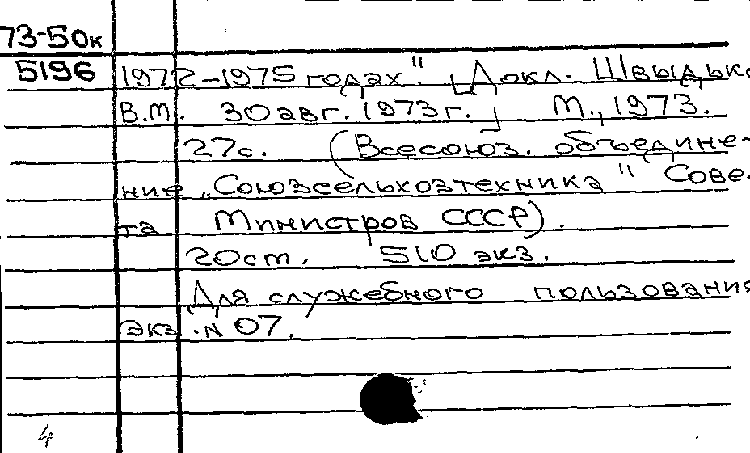 73-50к
5196 1972-1975 годах". [Докл. Швыдько
В.М. 30 авг. 1973 г.] М., 1973.
27с. (Всесоюз. объедине-
ние „Союзсельхозтехника" Сове-
та Министров СССР).
20 ст. 510 экз.
Для служебного пользования
экз. N 07.
4